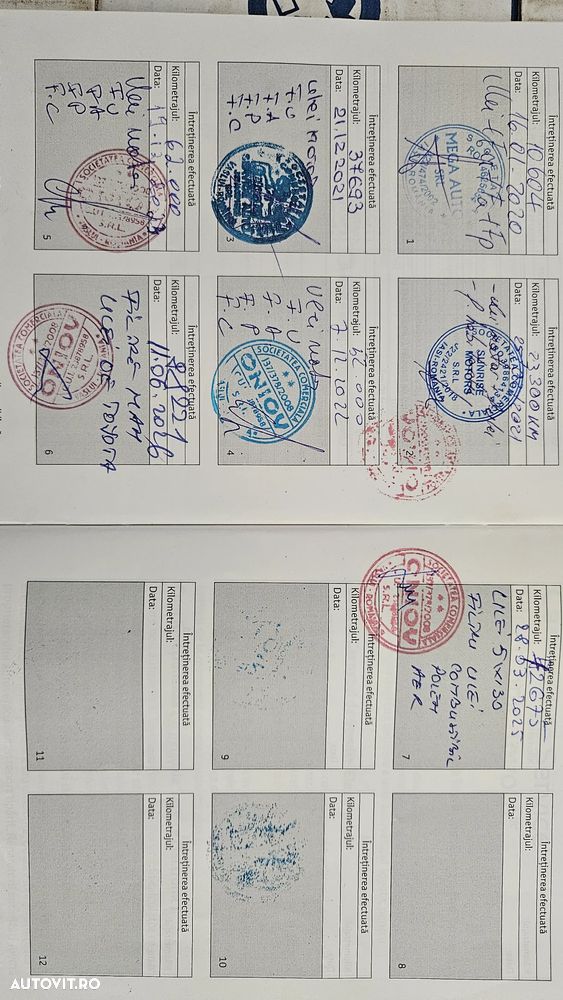 Întreținerea efectuată
Kilometrajul: 10604
Data: 16.01.2020
MEGA AUTO
SRL
1
Întreținerea efectuată
Kilometrajul: 23 300 KM
Data:
SUNRISE
MOTORS
S.R.L.
IASI-ROMANIA
2
Întreținerea efectuată
Kilometrajul: 37693
Data: 21.12.2021
Ulei motor
F. U
F. A
F. P
F. C
3
Întreținerea efectuată
Kilometrajul: 52.000
Data: 7.12.2022
Ulei motor
F. U
F. A
F. P
F. C
SOCIETATEA COMERCIALA
J37/178/2008
S.R.L.
4
Întreținerea efectuată
Kilometrajul: 62.000
Data:
Ulei motor
F U
F A
F. P
F. C
SOCIETATEA
S.R.L.
5
Întreținerea efectuată
Kilometrajul:
Data: 11.06.2026
FILTRE MAN
ULEI OE TOYOTA
SOCIETATEA COMERCIALA
S.R.L.
6
Întreținerea efectuată
Kilometrajul:
Data: 28.03.2025
ULEI 5W30
FILTRU ULEI
COMBUSTIBIL
POLEN
AER
SOCIETATEA COMERCIALA
S.R.L.
7
Întreținerea efectuată
Kilometrajul:
Data:
8
Întreținerea efectuată
Kilometrajul:
Data:
9
Întreținerea efectuată
Kilometrajul:
Data:
10
Întreținerea efectuată
Kilometrajul:
Data:
11
Întreținerea efectuată
Kilometrajul:
Data:
12
AUTOVIT.RO